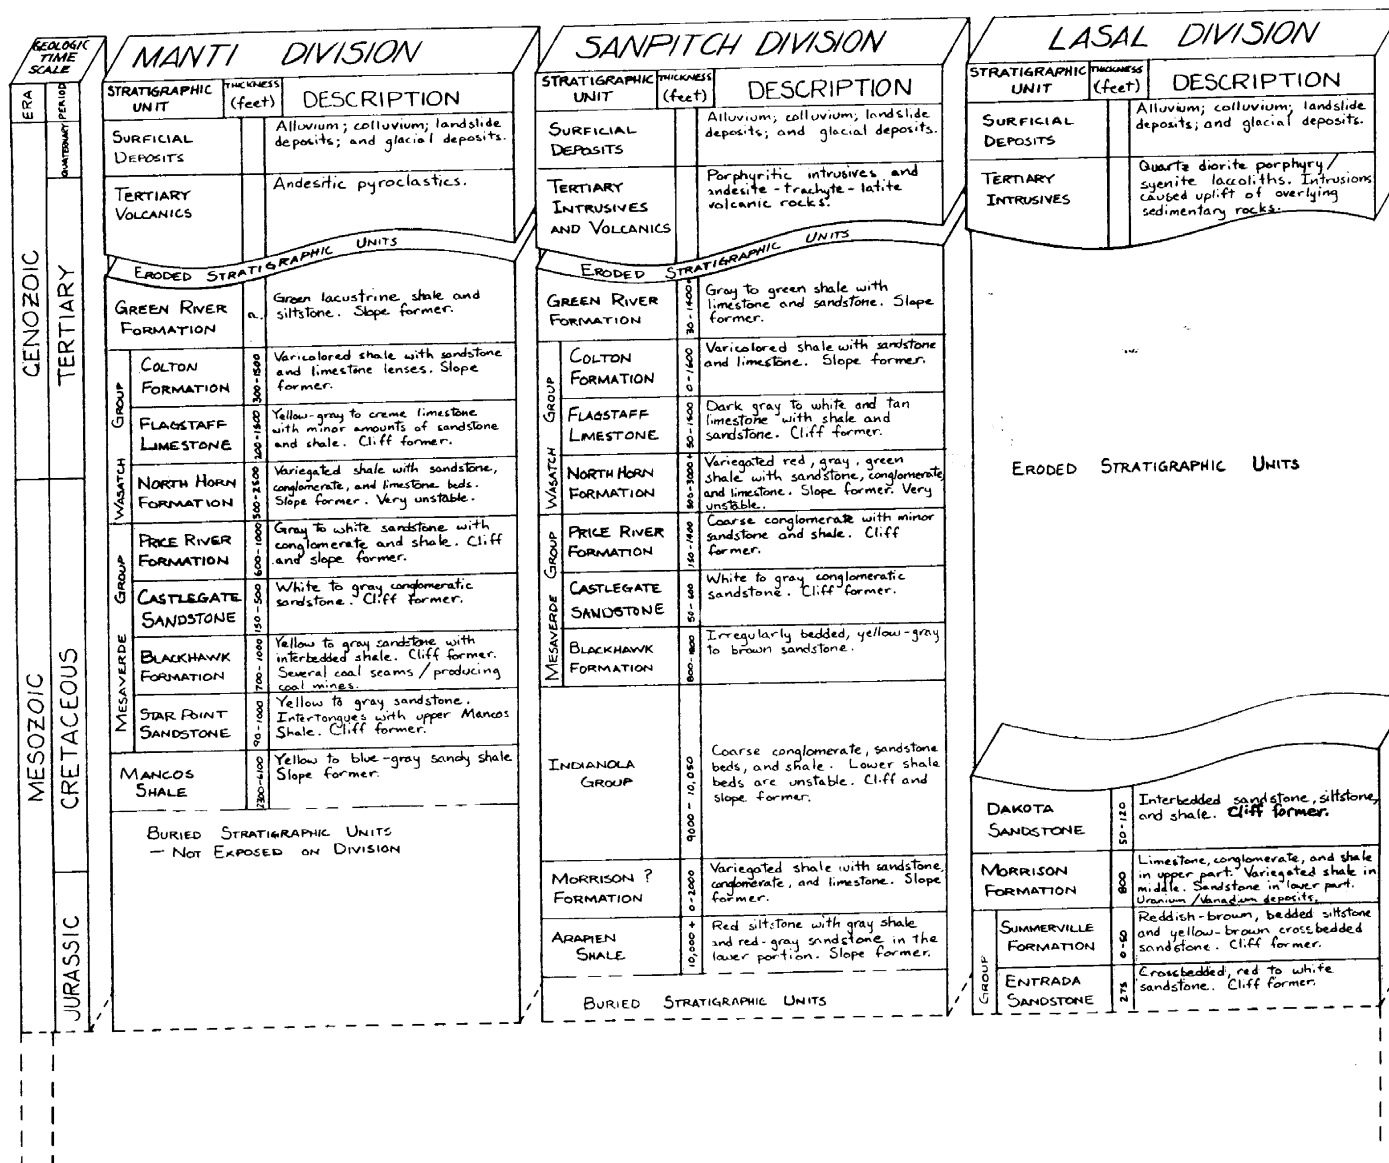 GEOLOGIC
TIME
SCALE
ERA
PERIOD
CENOZOIC
MESOZOIC
QUATERNARY
TERTIARY
CRETACEOUS
JURASSIC
MANTI DIVISION
STRATIGRAPHIC
UNIT
THICKNESS
(feet)
DESCRIPTION
SURFICIAL
DEPOSITS
Alluvium; colluvium; landslide
deposits; and glacial deposits.
TERTIARY
VOLCANICS
Andesitic pyroclastics.
ERODED STRATIGRAPHIC UNITS
GREEN RIVER
FORMATION
Green lacustrine shale and
siltstone. Slope former.
WASATCH GROUP
COLTON
FORMATION
300-1500
Varicolored shale with sandstone
and limestone lenses. Slope
former.
FLAGSTAFF
LIMESTONE
200-1500
Yellow-gray to creme limestone
with minor amounts of sandstone
and shale. Cliff former.
NORTH HORN
FORMATION
500-2500
Variegated shale with sandstone,
conglomerate, and limestone beds.
Slope former. Very unstable.
MESAVERDE GROUP
PRICE RIVER
FORMATION
600-1000
Gray to white sandstone with
conglomerate and shale. Cliff
and slope former.
CASTLEGATE
SANDSTONE
150-500
White to gray conglomeratic
sandstone. Cliff former.
BLACKHAWK
FORMATION
700-1000
Yellow to gray sandstone with
interbedded shale. Cliff former.
Several coal seams / producing
coal mines.
STAR POINT
SANDSTONE
90-1000
Yellow to gray sandstone.
Intertongues with upper Mancos
Shale. Cliff former.
MANCOS
SHALE
2300-6100
Yellow to blue-gray sandy shale
Slope former.
BURIED STRATIGRAPHIC UNITS
- NOT EXPOSED ON DIVISION
SANPITCH DIVISION
STRATIGRAPHIC
UNIT
THICKNESS
(feet)
DESCRIPTION
SURFICIAL
DEPOSITS
Alluvium; colluvium; landslide
deposits; and glacial deposits.
TERTIARY
INTRUSIVES
AND VOLCANICS
Porphyritic intrusives and
andesite-trachyte-latite
volcanic rocks.
ERODED STRATIGRAPHIC UNITS
GREEN RIVER
FORMATION
30-1400+
Gray to green shale with
limestone and sandstone. Slope
former.
WASATCH GROUP
COLTON
FORMATION
0-1600
Varicolored shale with sandstone
and limestone. Slope former.
FLAGSTAFF
LIMESTONE
50-1500
Dark gray to white and tan
limestone with shale and
sandstone. Cliff former.
NORTH HORN
FORMATION
500-3000+
Variegated red, gray, green
shale with sandstone, conglomerate
and limestone. Slope former. Very
unstable.
MESAVERDE GROUP
PRICE RIVER
FORMATION
Coarse conglomerate with minor
sandstone and shale. Cliff
former.
CASTLEGATE
SANDSTONE
50-600
White to gray conglomeratic
sandstone. Cliff former.
BLACKHAWK
FORMATION
Irregularly bedded, yellow-gray
to brown sandstone.
INDIANOLA
GROUP
9000-10,050
Coarse conglomerate, sandstone
beds, and shale. Lower shale
beds are unstable. Cliff and
slope former.
MORRISON ?
FORMATION
0-2000
Variegated shale with sandstone,
conglomerate, and limestone. Slope
former.
ARAPIEN
SHALE
10,000+
Red siltstone with gray shale
and red-gray sandstone in the
lower portion. Slope former.
BURIED STRATIGRAPHIC UNITS
LASAL DIVISION
STRATIGRAPHIC
UNIT
THICKNESS
(feet)
DESCRIPTION
SURFICIAL
DEPOSITS
Alluvium; colluvium; landslide
deposits; and glacial deposits.
TERTIARY
INTRUSIVES
Quartz diorite porphyry/
syenite laccoliths. Intrusions
caused uplift of overlying
sedimentary rocks.
ERODED STRATIGRAPHIC UNITS
DAKOTA
SANDSTONE
50-120
Interbedded sandstone, siltstone,
and shale. Cliff former.
MORRISON
FORMATION
800
Limestone, conglomerate, and shale
in upper part. Variegated shale in
middle. Sandstone in lower part.
Uranium/Vanadium deposits.
GROUP
SUMMERVILLE
FORMATION
0-60
Reddish-brown, bedded siltstone
and yellow-brown crossbedded
sandstone. Cliff former.
ENTRADA
SANDSTONE
275
Crossbedded, red to white
sandstone. Cliff former.